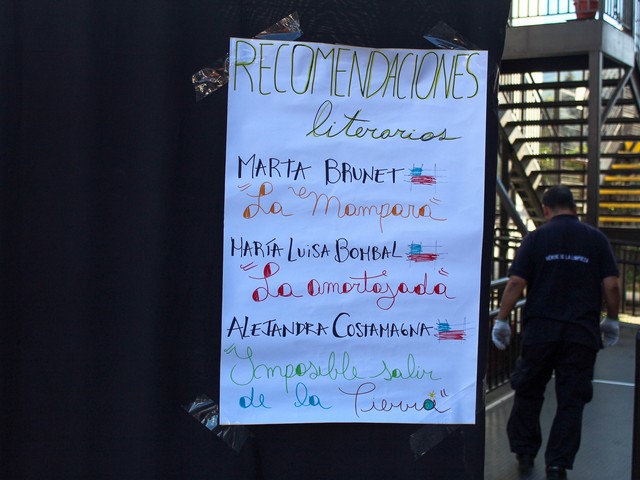 RECOMENDACIONES
literarias
MARTA BRUNET
"La Mampara"
MARÍA LUISA BOMBAL
"La amortajada"
ALEJANDRA COSTAMAGNA
"Imposible salir
de la Tierra"